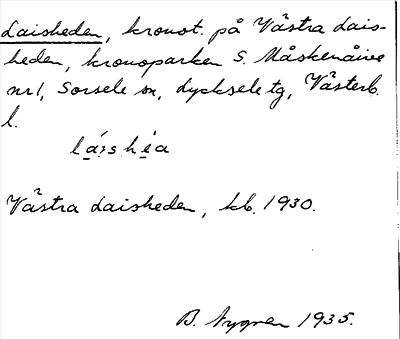 Laisheden, kronot. på Västra Lais-
heden, kronoparken S. Måskenåive
nr 1, Sorsele sn, Lycksele tg, Västerb.
l.
lá̱i̯s hé̱a
Västra Laisheden, kb. 1930.
B. Nygren 1935.